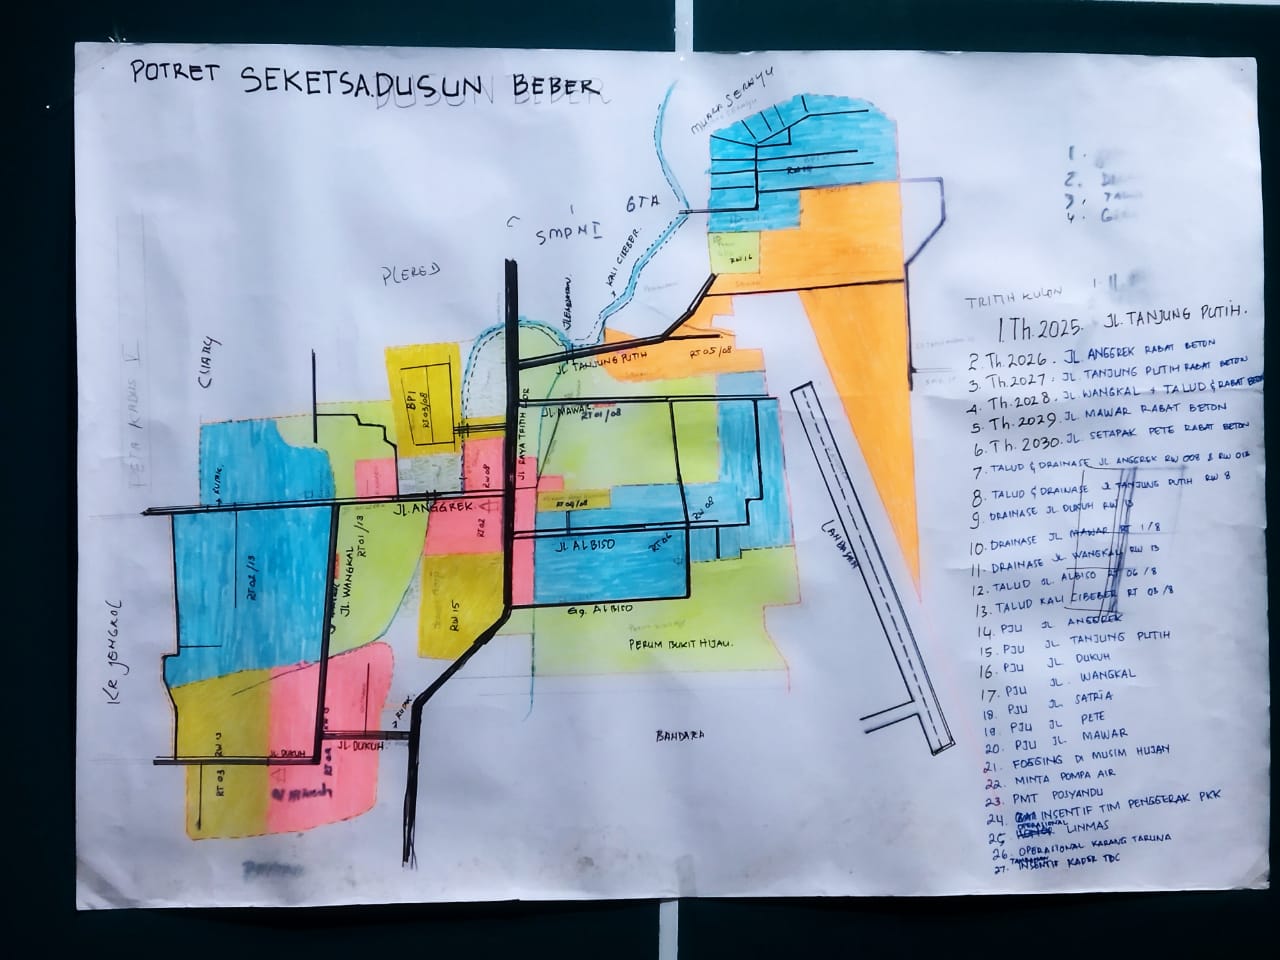 POTRET SEKETSA DUSUN BEBER
MUARA SERAYU
GTA
SMPN I
KALI CIBEBER
PLERED
CLIANG
PETA KADUS V
RW 16
JL TANJUNG PUTIH
RT 05/08
BPI
RT 03/08
JL RAYA TRITIH KULOR
JL MAWAR
RT 01/08
RW 08
JL. ANGGREK
RT 02
RT 04/08
RW 08
JL ALBISO
RT 06
Gg. ALBISO
LANDASAN
RT 01/13
JL. WANGKAL
RT 02/13
KR JENGKOL
RW 15
PERUM BUKIT HIJAU.
BANDARA
JL DUKUH
JL DUKUH
RT 03
1.
2.
3.
4.
TRITIH KULON
1.Th.2025. JL.TANJUNG PUTIH.
2.Th.2026. JL ANGGREK RABAT BETON
3.Th.2027. JL TANJUNG PUTIH RABAT BETON
4.Th.2028. JL WANGKAL + TALUD & RABAT BETON
5.Th.2029. JL MAWAR RABAT BETON
6.Th.2030. JL SETAPAK PETE RABAT BETON
7. TALUD & DRAINASE JL ANGGREK RW 008 & RW 013
8. TALUD & DRAINASE JL TANJUNG PUTIH RW 8
9. DRAINASE JL DUKUH RW 13
10. DRAINASE JL MAWAR RT 1/8
11. DRAINASE JL WANGKAL RW 13
12. TALUD JL ALBISO RT 06/8
13. TALUD KALI CIBEBER RT 03/8
14. PJU JL ANGGREK
15. PJU JL TANJUNG PUTIH
16. PJU JL DUKUH
17. PJU JL. WANGKAL
18. PJU JL SATRIA
19. PJU JL PETE
20. PJU JL MAWAR
21. FOGGING DI MUSIM HUJAN
22. MINTA POMPA AIR
23. PMT POSYANDU
24. INSENTIF TIM PENGGERAK PKK
25. OPERASIONAL LINMAS
26. OPERASIONAL KARANG TARUNA
27. INSENTIF KADER TBC